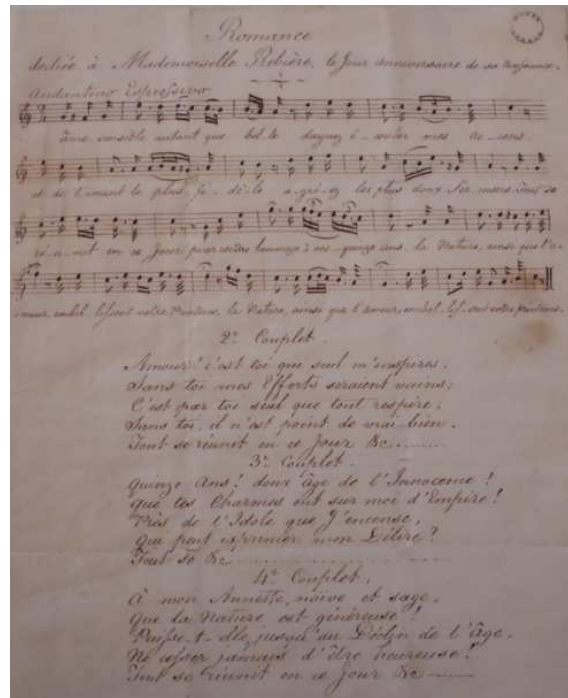 Romance
dédiée à Mademoiselle Rebière, le Jour anniversaire de sa Naissance.
Andantino Espressivo
âme sensible autant que bel-le daignez é-couter mes ac-cens.
et de l'amant le plus fi-dè-le a-gré-ez les plus doux Tout se
ré-u-nit en ce Jour, pour rendre hommage à vos quinze ans, la Nature, ainsi que l'a-
-mour, embel-lissent votre Printems, la Nature, ainsi que l'amour, embel-lis-sent votre printems.
2e Couplet.
Amour! c'est toi que seul m'inspires,
Sans toi mes Efforts seraient vains;
C'est par toi seul que tout respire;
Sans toi, il n'est point de vrai bien.
Tout se réunit en ce Jour &c
3e Couplet.
Quinze Ans! doux âge de l'Innocence!
Que tes Charmes ont sur moi d'Empire!
Près de l'Idole que J'encense,
Qui peut exprimer mon Délire?
Tout se &c
4e Couplet.
à mon Annette, naïve et sage,
Que la Nature est généreuse!
Puisse-t-elle, jusqu'au Déclin de l'Âge,
Ne cesser jamais d'être heureuse!
Tout se réunit en ce Jour &c